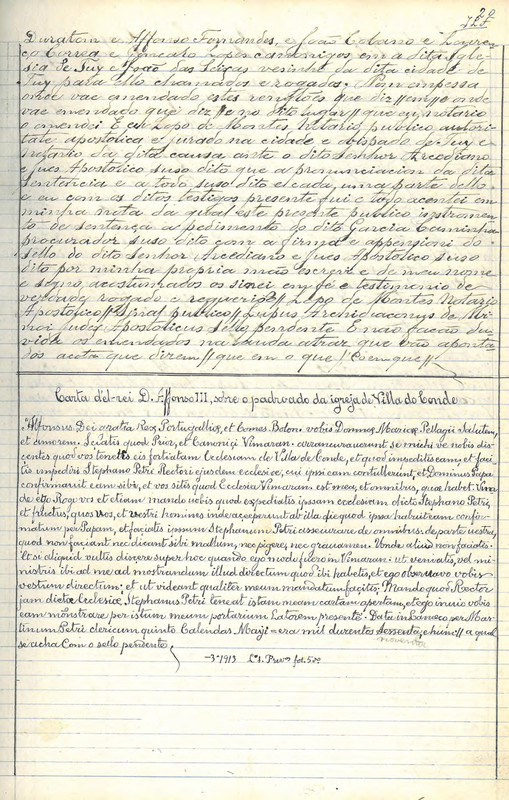 Duratom e Affonso Fernandes, e João Cobano e Louren-
ço Correa e Gonçalo conegos em a dita Igle-
sia de Tuy e João das Leiças vesinho da dita cidade de
Tuy para ello chamados e rogados. Nom empessa
onde vae amendado estes renglões que diz // em // e onde
vae emendado que diz // e no dito lugar // que eu notario
o amendei. E eu Lopo de Montes Notario publico autori-
tate apostolica e jurado na cidade e obispado de Tuy e
da dita causa ante o dito senhor Arcediano
e Jues Apostolico suso dito que a pronunciacion da dita
sentencia e a todo suso dito e cada uma parte dello
e eu com os ditos testigos presente fui e todo acontei em
minha nota da qual este presente publico instromen-
to de sentença a pedimento do dito Garcia Caminha
procurador suso dito com a firma e appensioni do
sello do dito senhor Arcediano e Jues Apostolico suso
dito por minha propria mão escrevi e de meu nome
e signo acostumados os sinei em fé e testimonio de
verdade rogado e requerido // Lopo de Montes Notario
Apostolico // Signal publico // Lupus Archidiaconus de Mi-
nor Judex Apostolicus sello pendente E não fação du-
vida os emendados na lauda atraz que vão aponta-
dos acota que dizem // que em o que //
Carta d'el-rei D. Affonso III, sobre o padroado da igreja de Villa do Conde
Alfonsus Dei gratia Rex Portugallie, et Comes Bolon. vobis Domne Marie Pellagii salutem,
et amorem. Sciatis quod Prior, et Canonici Vimaran. conquerunt se michi de vobis di-
centes quod vos tenetis eis fortiatam Ecclesiam de Villa de Conde, et quod impeditis eam, et faci-
tis impediri Stephano Petri Rectori ejusdem ecclesiæ, cui ipsi eam contullerunt, et Dominus Papa
confirmavit eam sibi, et vos sitis quod Ecclesia Vimaran. est mea, et omnibus, qua habet. Un-
de ego Rogo vos et etiam mando vobis quod expediatis ipsam ecclesiam dicto Stephano Petri,
et fructus, quos vos, et vestri homines inde acceperunt ab illa die quod ipsa habuit eam confir-
matum per Papam, et faciatis ipsum Stephanum Petri assecurare de omnibus de parte vestra,
quod non faciant nec dicant sibi mallum, nec pejore, nec gravamen. Unde aliud non faciatis.
Et si aliquid vultis dicere super hoc quando ego modo fuero in Vimaran. ut veniatis, vel mi-
nistris ibi ad me ad mostrandum illud directum quod ibi habetis, et ego observavo vobis
vestrum directum; et ut videant qualiter meum mandatum facitis; Mando quod Rector
jam dictæ Ecclesiæ Stephanus Petri teneat istam meam cartam apertam, et ego invio vobis
eam monstrare per istum meum portarium Latorem presente. Data in Lameco per Mar-
tinum Petri clericum quinto Calendas Maji = era mil durentos sessenta, e hum // a qual
noventa
se acha Com o sello pendente.
-3-1913